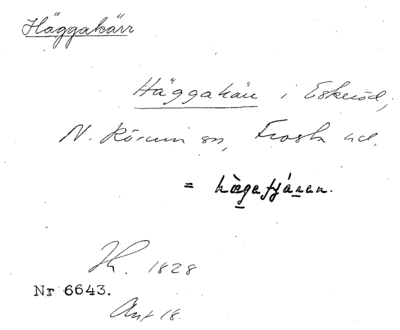 Häggakärr
Häggakärr i Eskeröd,
N. Rörum sn, Frosta hd.
= hægatjáren.
Jh. 1828
Nr 6643.
Ant 18.